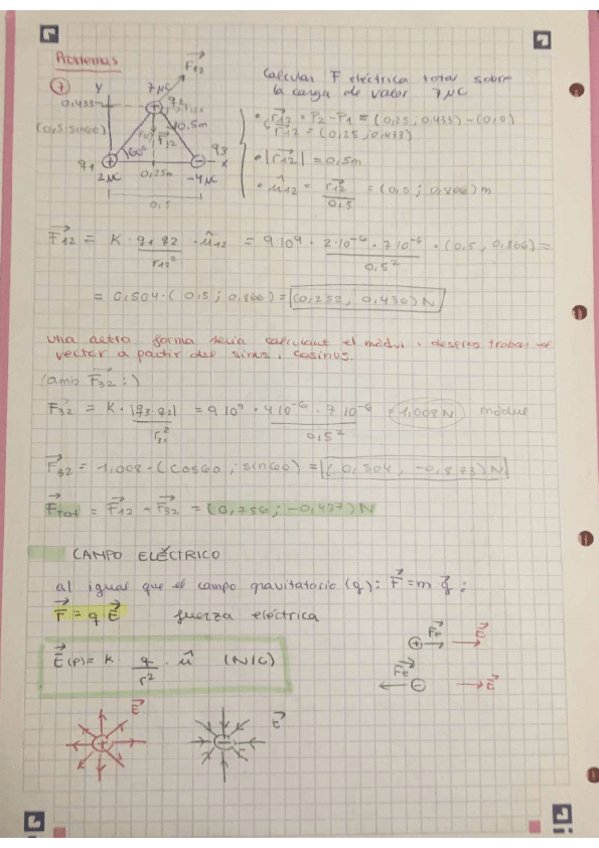 Problemas
7
Calcular F eléctrica total sobre
la carga de valor 7 μC
F12
y
7μC
0,433m
q2
(0,5 sin 60)
0,5m
F32
60°
q1
q3
x
2μC
0,25m
-4μC
0,5
• r12 = P2 - P1 = (0,25, 0,433) - (0,0)
r12 = (0,25, 0,433)
• |r12| = 0,5m
• û12 = r12/0,5 = (0,5; 0,866) m
F12 = K · q1 q2/r12² · û12 = 9·10⁹ · 2·10⁻⁶ · 7·10⁻⁶/0,5² · (0,5, 0,866) =
= 0,504 · (0,5; 0,866) = (0,252, 0,436) N
una altra forma seria calculant el mòdul i després trobar el
vector a partir del sinus i cosinus.
(amb F32 :)
F32 = K · |q3 q2|/r32² = 9·10⁹ · 4·10⁻⁶ · 7·10⁻⁶/0,5² = 1,008 N módulo
F32 = 1,008 · (cos60, sin60) = (0,504, -0,873) N
Ftot = F12 + F32 = (0,756; -0,437) N
CAMPO ELÉCTRICO
al igual que el campo gravitatorio (g): F = m g ;
F = q · E fuerza eléctrica
E(P) = K q/r² · û (N/C)
+ Fe E
Fe - E
+ E
- E